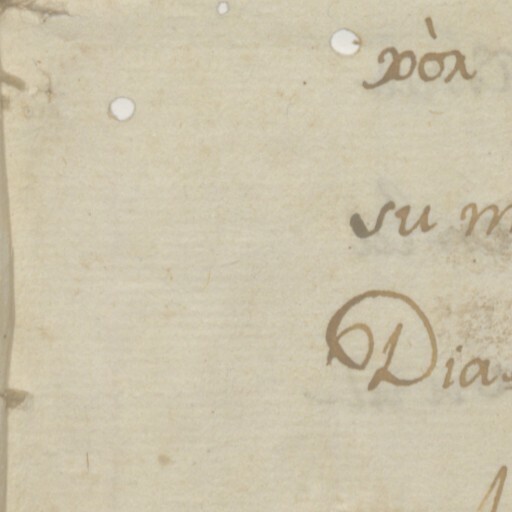 pòr
su m
Dias